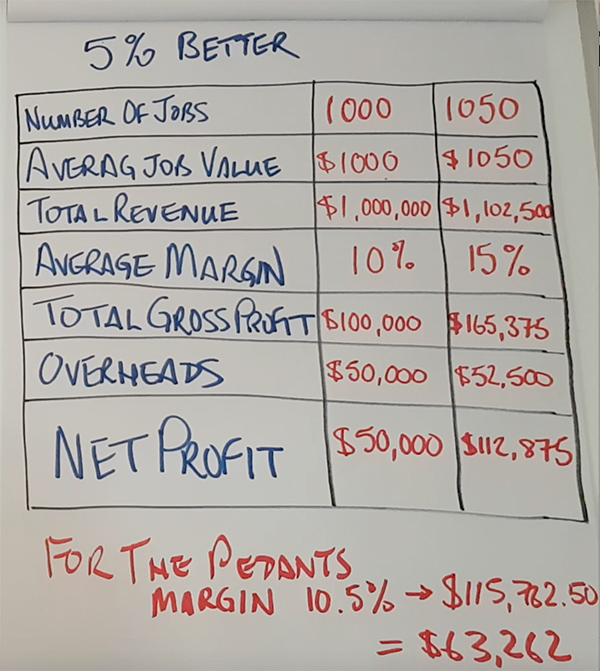 5% BETTER
NUMBER OF JOBS 1000 1050
AVERAG JOB VALUE $1000 $1050
TOTAL REVENUE $1,000,000 $1,102,500
AVERAGE MARGIN 10% 15%
TOTAL GROSS PROFIT $100,000 $165,375
OVERHEADS $50,000 $52,500
NET PROFIT $50,000 $112,875
FOR THE PEDANTS
MARGIN 10.5% → $115,762.50
= $63,262